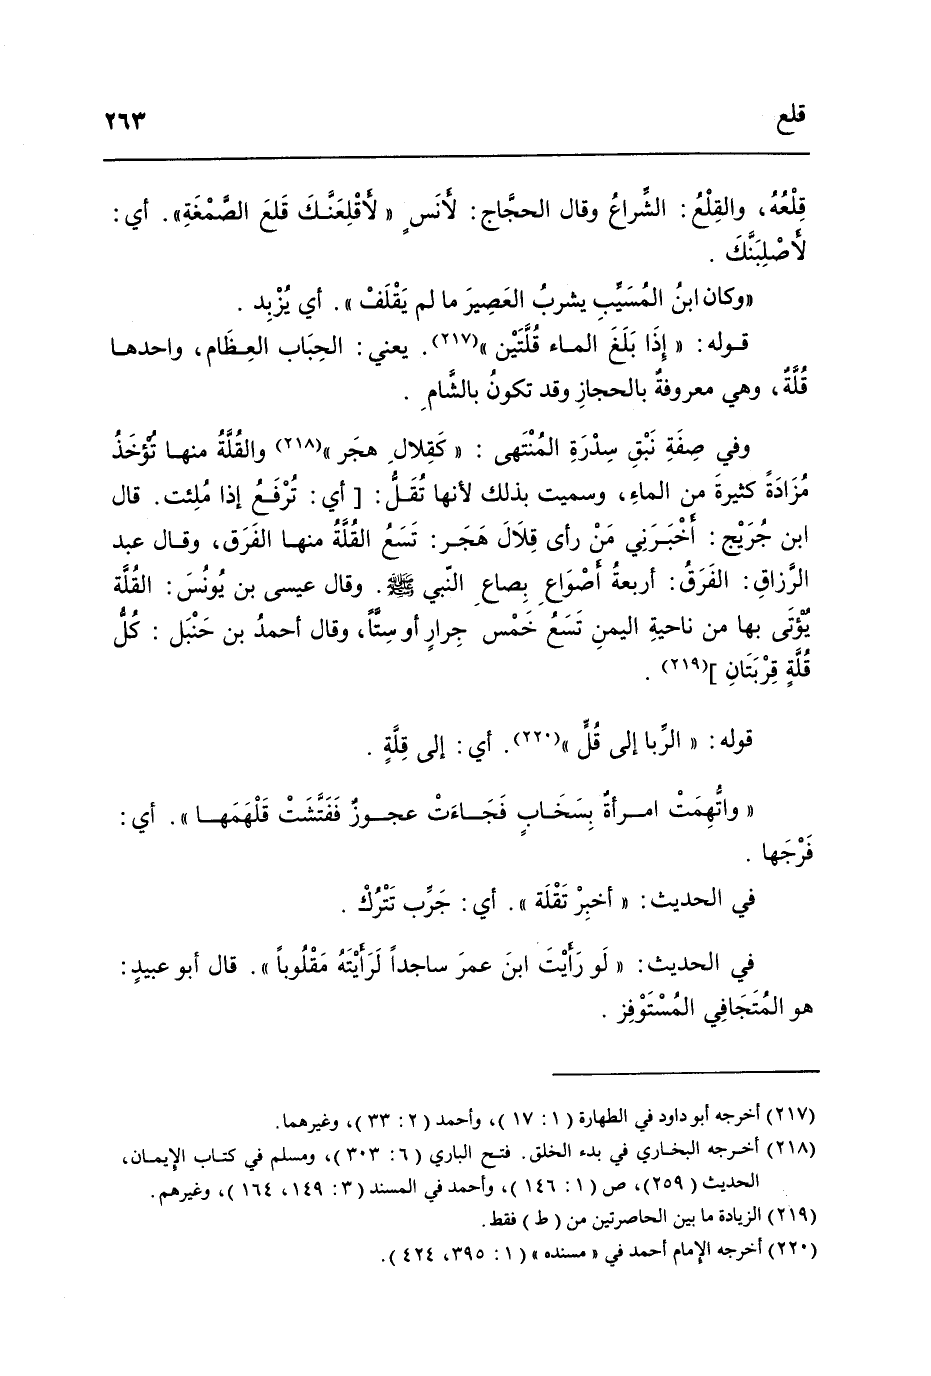 قلع
٢٦٣
قِلْعُهُ، والقِلْعُ: الشِّراعُ وقال الحجَّاج: لأَنَسٍ « لأَقْلِعَنَّكَ قَلعَ الصَّمْغَةِ». أي:
لأَصْلِبَنَّكَ .
«وكان ابنُ المُسَيِّبِ يشربُ العَصِيرَ ما لم يَقْلَفْ ». أي يُزْبِد .
قوله: « إِذَا بَلَغَ الماء قُلَّتَيْن »(٢١٧). يعني: الحِبَاب العِظَام، واحدها
قُلَّةٌ، وهي معروفةٌ بالحجازِ وقد تكونُ بالشَّامِ .
وفي صِفَةِ نَبْقِ سِدْرَةِ المُنْتَهى : « كَقِلالِ هجَر »(٢١٨) والقُلَّةُ منها تُؤْخَذُ
مُزَادَةً كثيرةَ من الماءِ، وسميت بذلك لأنها تُقَلُّ: [ أي: تُرْفَعُ إذا مُلِئت. قال
ابن جُرَيْج: أَخْبَرَنِي مَنْ رأى قِلَالَ هَجَر: تَسَعُ القُلَّةُ منها الفَرَق، وقال عبد
الرَّزاقِ: الفَرَقُ: أربعةُ أَصْوَاعٍ بِصاعِ النّبي ﷺ. وقال عيسى بن يُونُسَ: القُلَّة
يُؤْتَى بها من ناحيةِ اليمنِ تَسَعُ خَمْس جِرارٍ أو سِتَّاً، وقال أحمدُ بن حَنْبَل : كُلُّ
قُلَّةٍ قِرْبَتَانِ ](٢١٩) .
قوله: « الرِّبا إلى قُلٍّ »(٢٢٠). أي: إلى قِلَّةٍ .
« واتُّهِمَتْ امرأةٌ بِسَخَابٍ فَجَاءَتْ عجوزٌ فَفَتَّشَتْ قَلْهَمَها ». أي:
فَرْجَها .
في الحديث: « أخبِرْ تَقْلَة ». أي: جَرِّب تَتْرُكْ .
في الحديث: « لَو رَأَيْتَ ابنَ عمرَ ساجداً لَرَأَيْتَهُ مَقْلُوباً ». قال أبو عبيدٍ:
هو المُتَجَافِي المُسْتَوْفِز .
(٢١٧) أخرجه أبو داود في الطهارة ( ١ : ١٧ )، وأحمد ( ٢ : ٣٣ )، وغيرهما.
(٢١٨) أخرجه البخاري في بدء الخلق. فتح الباري ( ٦ : ٣٠٣ )، ومسلم في كتاب الإيمان،
الحديث ( ٢٥٩ )، ص ( ١ : ١٤٦ )، وأحمد في المسند ( ٣ : ١٤٩، ١٦٤ )، وغيرهم.
(٢١٩) الزيادة ما بين الحاصرتين من ( ط ) فقط.
(٢٢٠) أخرجه الإمام أحمد في « مسنده » ( ١ : ٣٩٥، ٤٢٤ ).